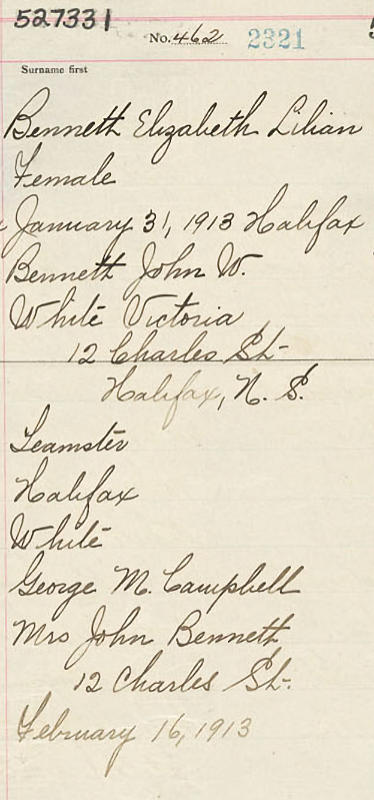 527331
No. 462 2321
Surname first
Bennett Elizabeth Lilian
Female
January 31, 1913 Halifax
Bennett John W.
White Victoria
12 Charles St-
Halifax, N. S.
Teamster
Halifax
White
George M. Campbell
Mrs John Bennett
12 Charles St-.
February 16, 1913